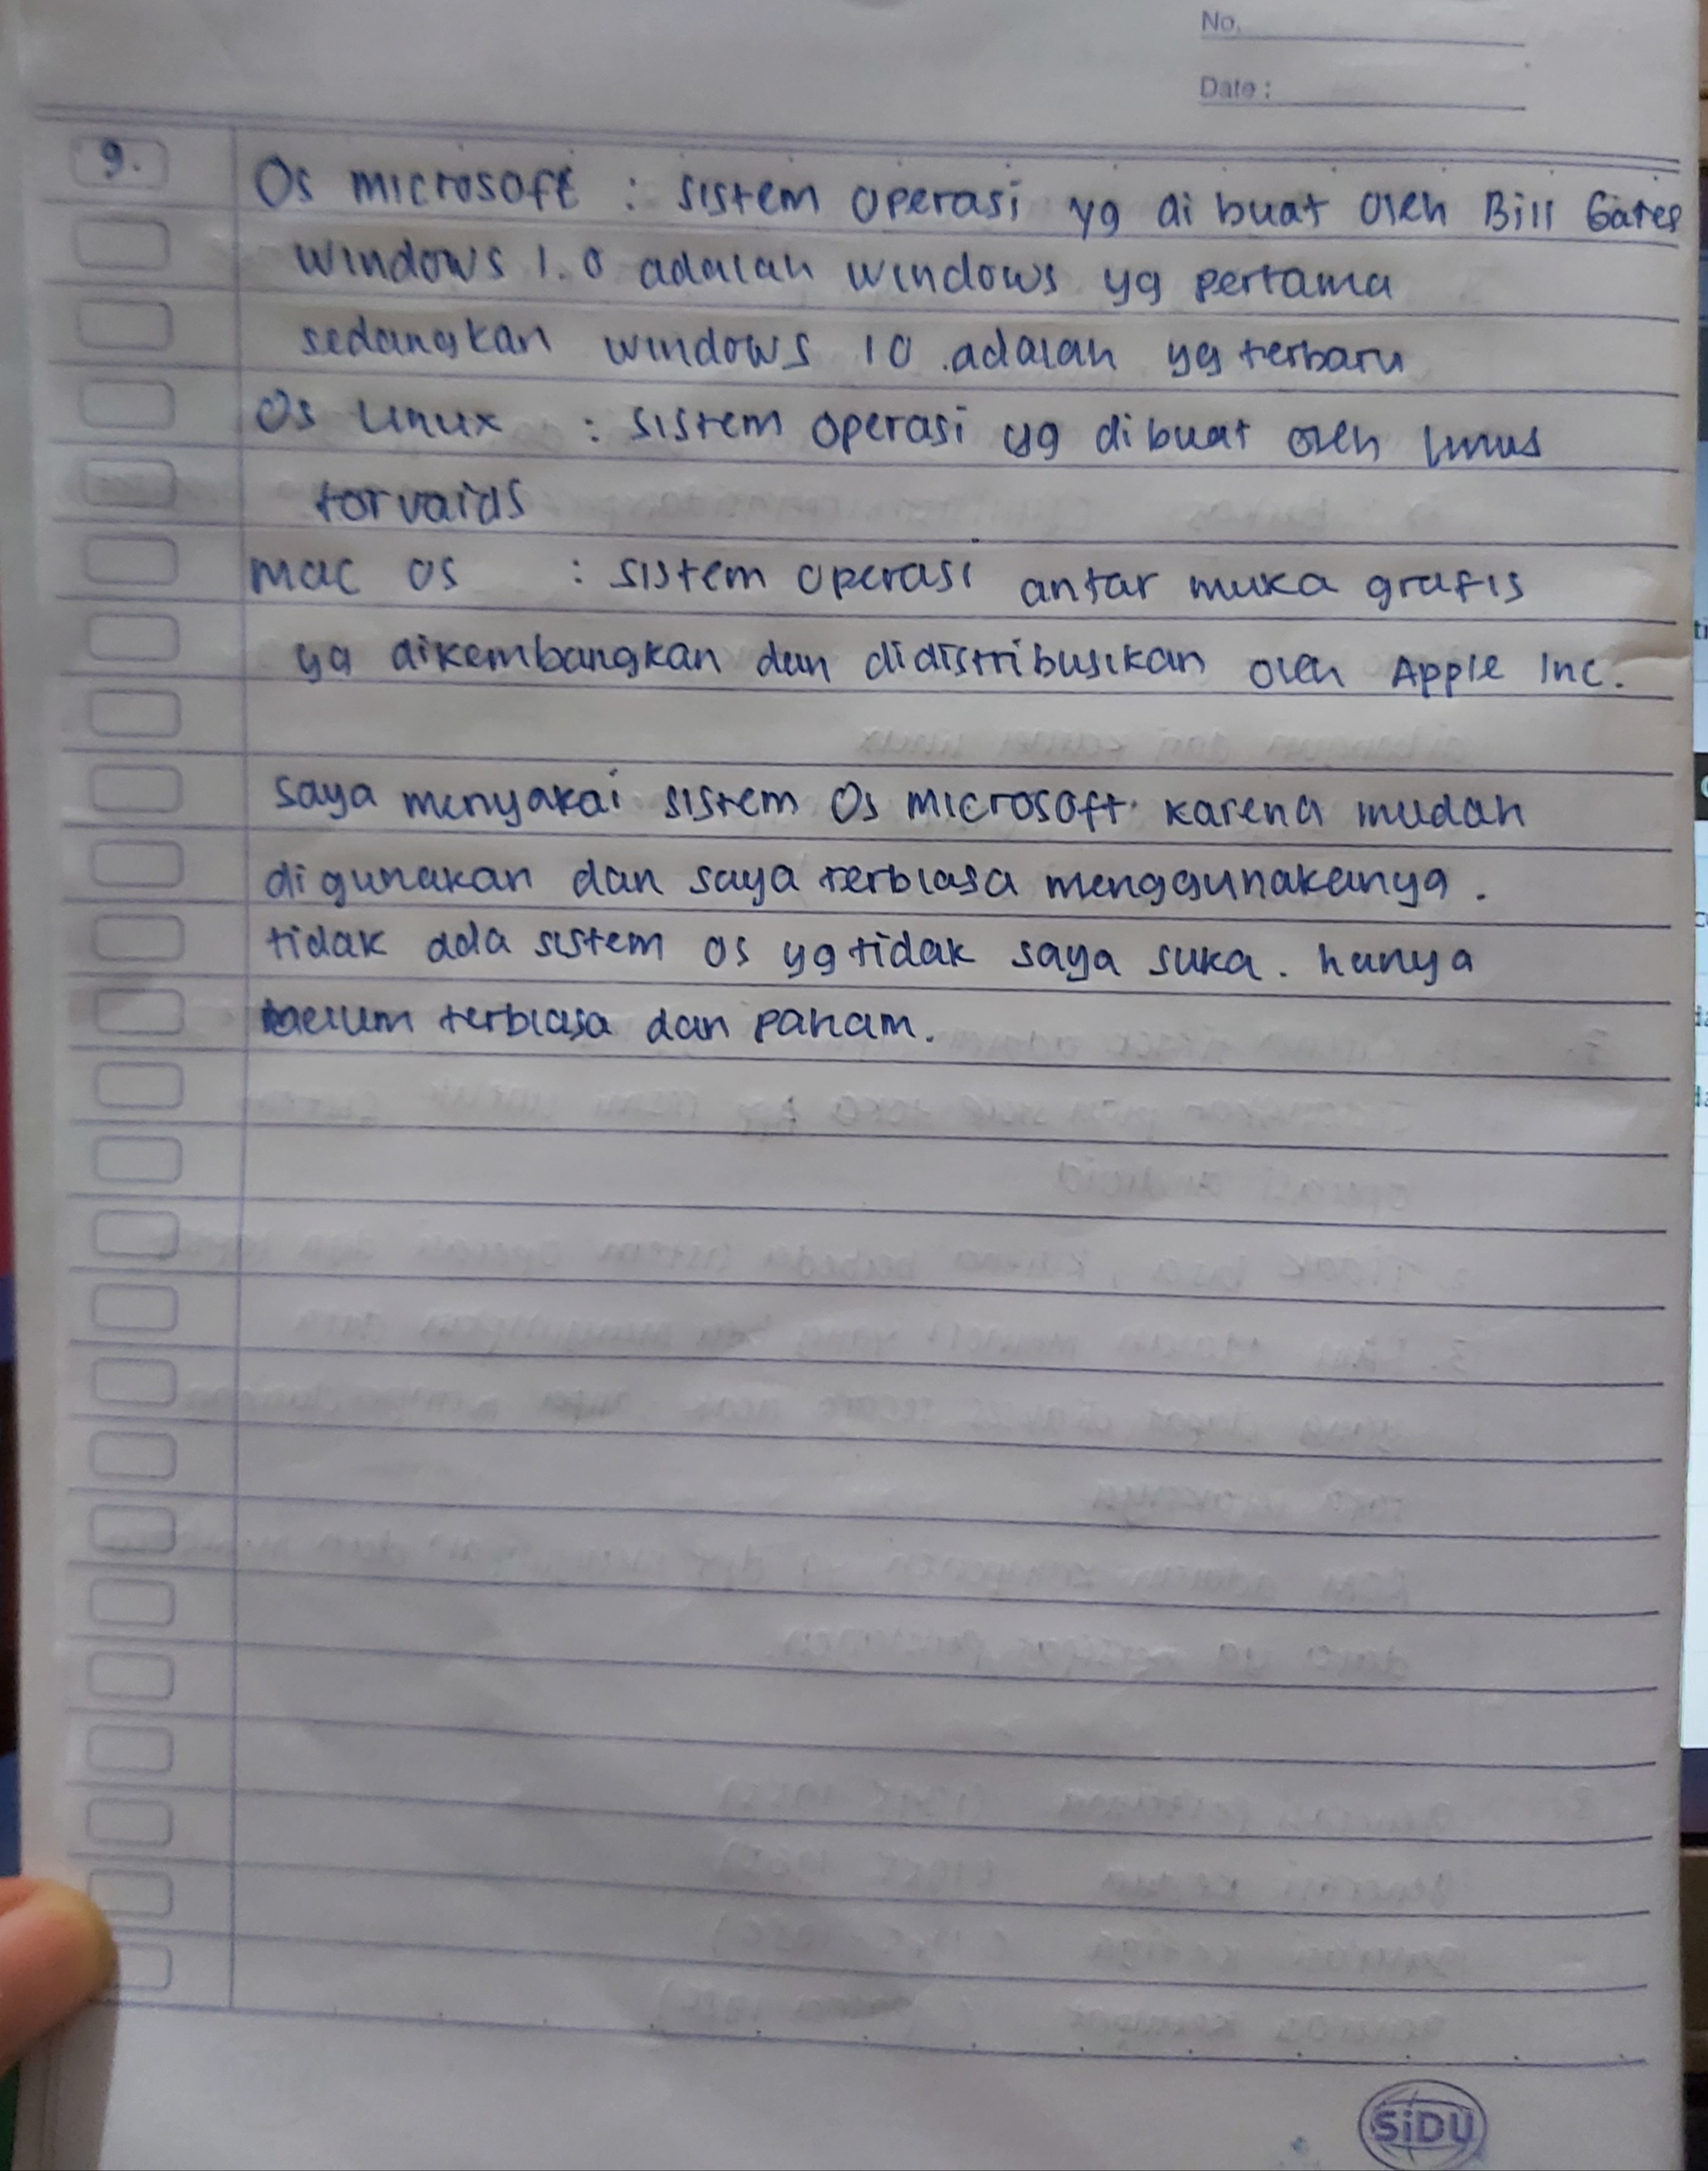 No.
Date :
9.
Os microsoft : sistem operasi yg di buat oleh Bill Gates
windows 1.0 adalah windows yg pertama
sedangkan windows 10 adalah yg terbaru
Os Linux : sistem operasi yg dibuat oleh linus
torvalds
mac os : sistem operasi antar muka grafis
yg dikembangkan dan didistribusikan oleh Apple Inc.
saya menyakai sistem Os microsoft karena mudah
digunakan dan saya terbiasa menggunakannya.
tidak ada sistem os yg tidak saya suka. hanya
belum terbiasa dan paham.
SiDU